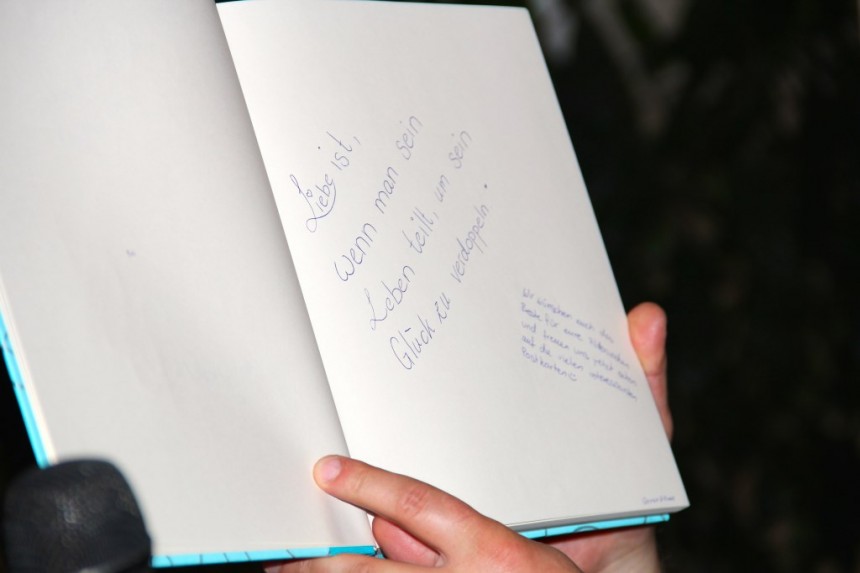 Liebe ist,
wenn man sein
Leben teilt, um sein
Glück zu verdoppeln.
Wir wünschen euch das
Beste für eure
und freuen uns jetzt schon
auf die vielen interessanten
Postkarten